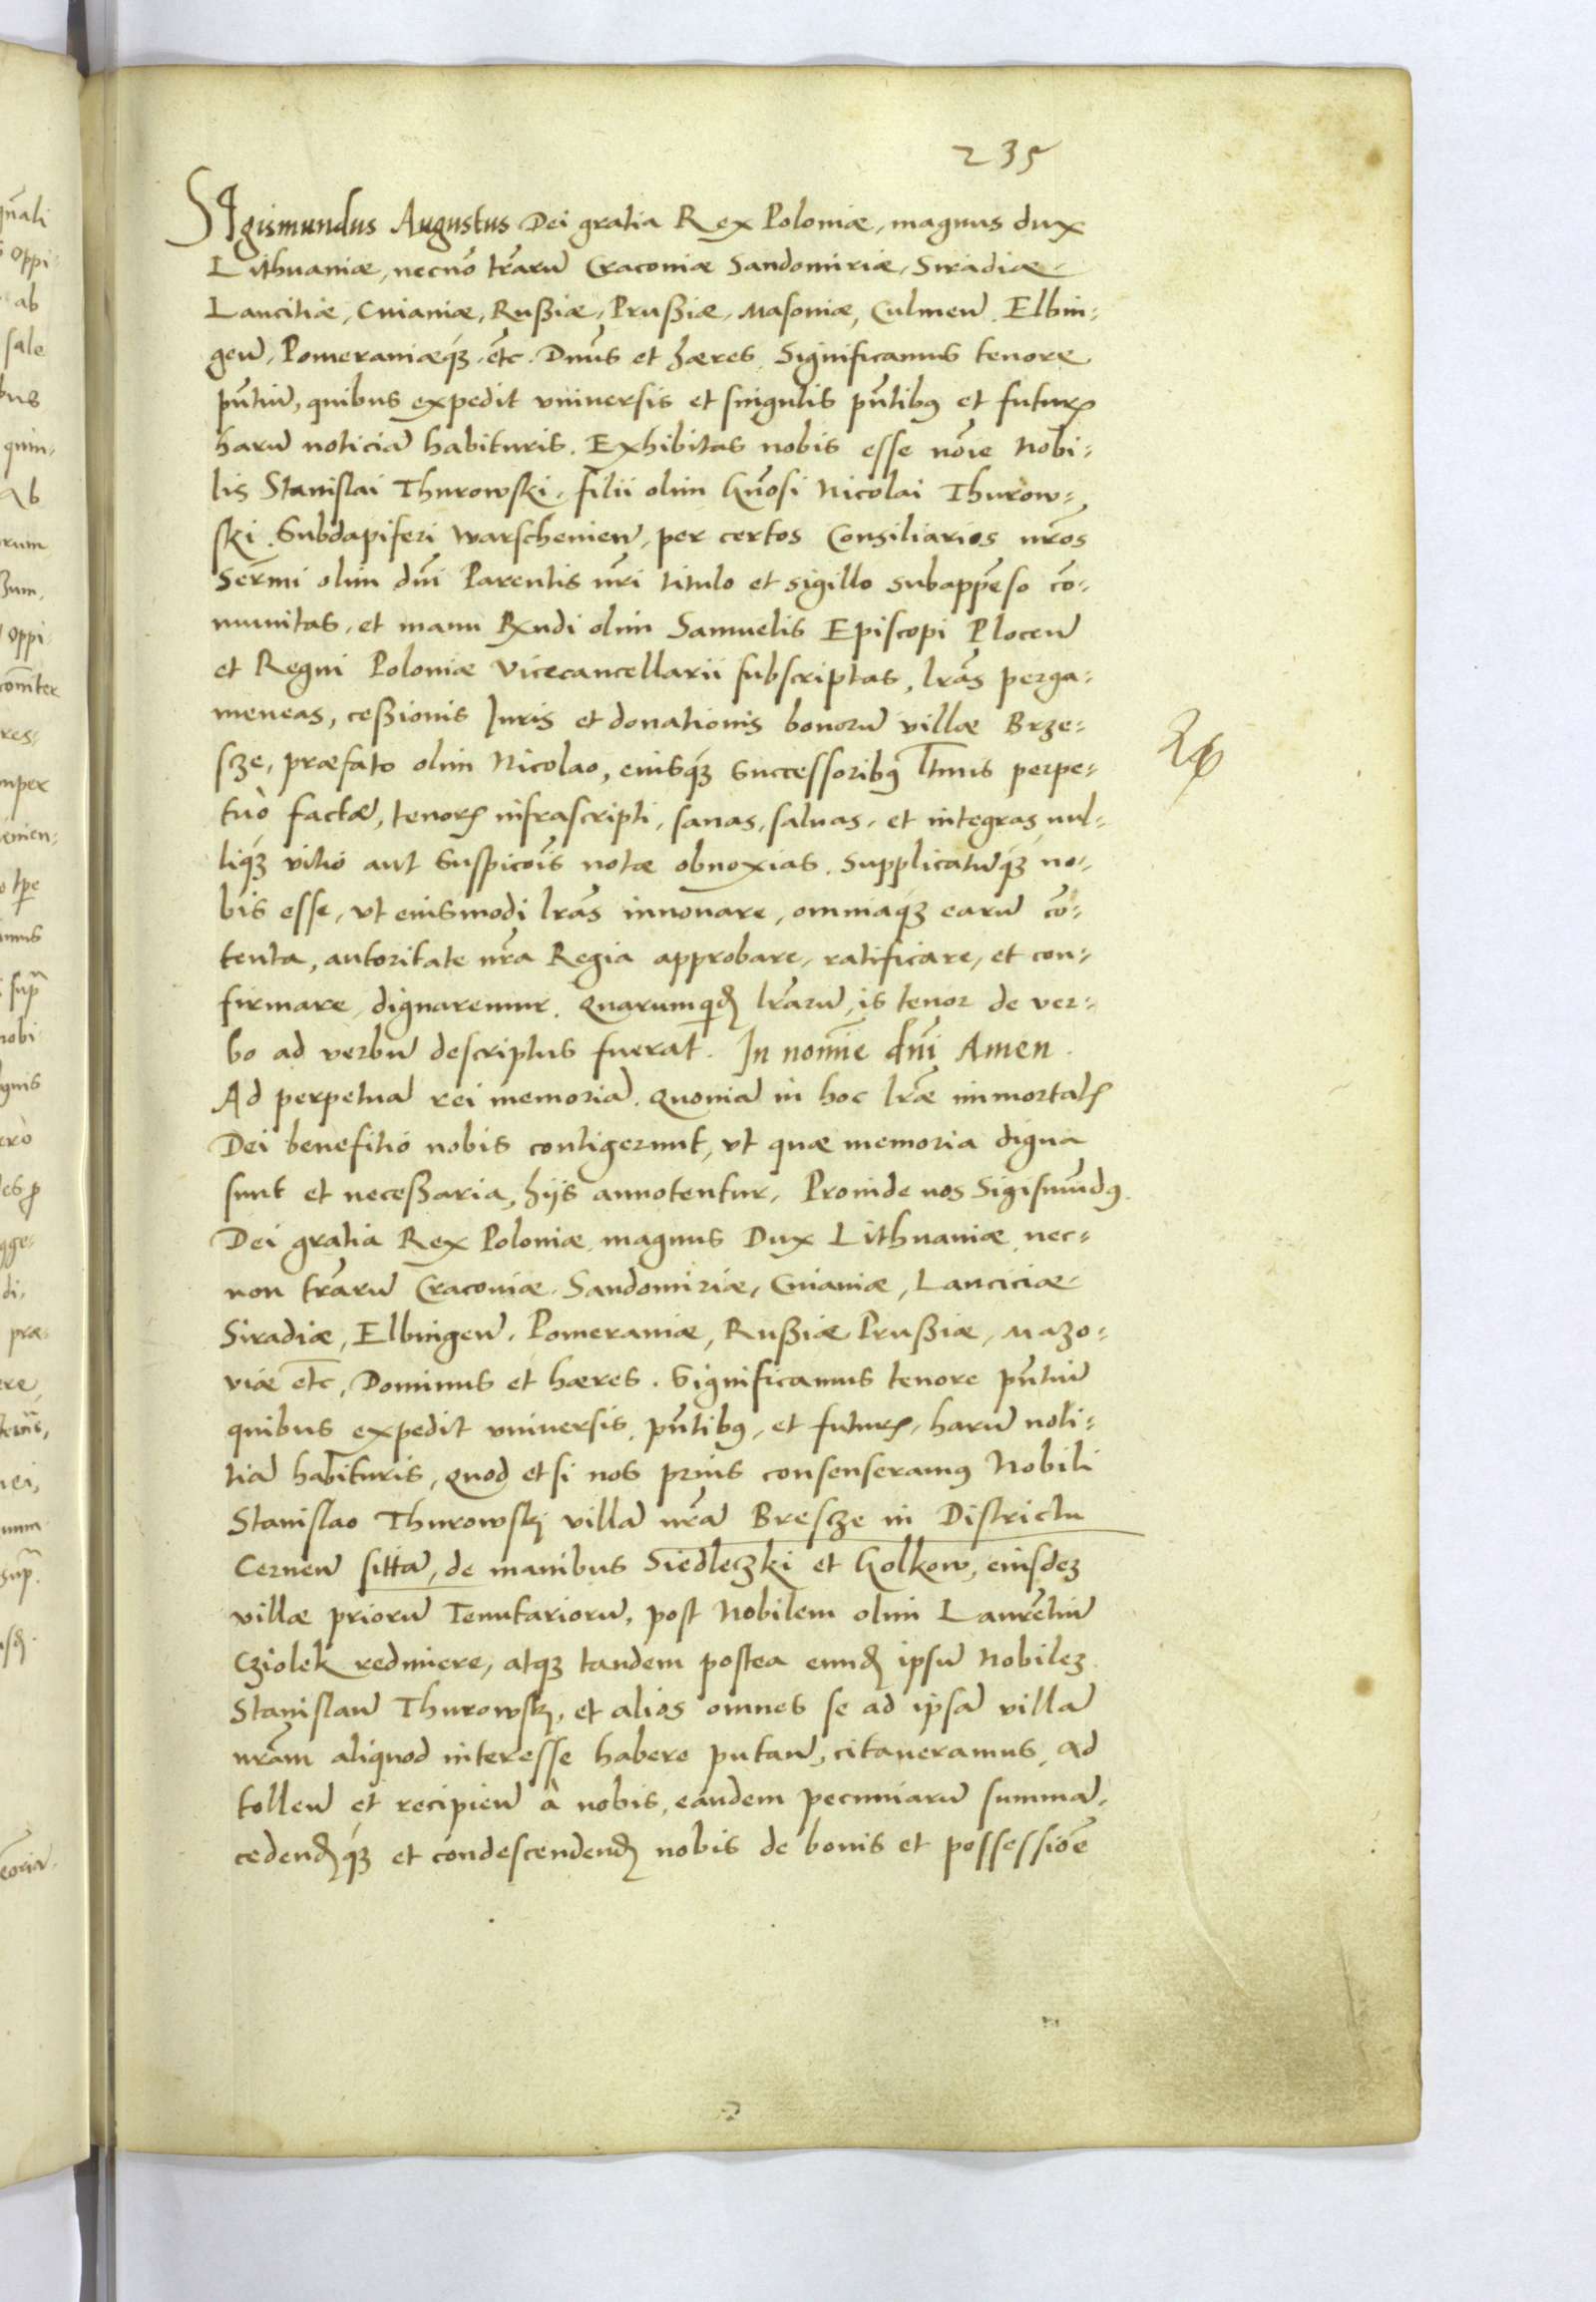 235
SIgismundus Augustus Dei gratia Rex Poloniæ, magnus dux
Lithuaniæ, necnō trāru͂ Craconiæ Sandomiriæ, Siradiæ,
Lancitiæ, Cuianiæ, Rußiæ, Prußiæ, Masoniæ, Culmen̄. Elbin:
gen̄, Pomeraniæq́ꝫ. etc̄. Dn̄us et hæres. Significamus tenore
pn̄tiu͂, quibus expedit vniuersis et singulis pn̄tibꝯ et futurꝭ
haru͂ noticia͂ habituris. Exhibitas nobis esse nōīe Nobi:
lis Stanislai Thurowski, filii olim Gn̄osi Nicolai Thurow:
ski. Subdapiferi Warschenien̄, per certos Consiliarios nr̄os
Ser̄mi olim dn̄i Parentis nr̄i titulo et sigillo subappe͂so co͂:
munitas, et manu Rx̄ndi olim Samuelis Episcopi Plocen̄
et Regni Poloniæ Vicecancellarii subscriptas, lr̄as perga:
meneas, ceßionis Iuris et donationis bonoru͂ villæ Brze:
sze, præfato olim Nicolao, eiusq́ꝫ successoribꝯ l̄timis perpe:
tuò factæ, tenorꝭ infrascripti, sanas, saluas, et integras, nul:
liq́ꝫ vitio aut suspicōīs notæ obnoxias. Supplicatu͂q́ꝫ no:
bis esse, vt eiusmodi lr̄as innouare, omniaq́ꝫ earu͂ co͂:
tenta, autoritate nr̄a Regia approbare, ratificare, et con:
firmare dignaremur. Quarumqꝺꝭ lr̄aru͂, is tenor de ver:
bo ad verbu͂ descriptus fuerat. In nomīe dn̄i Amen.
Ad perpetua͂ rei memoria͂. Quonia͂ in hoc lr̄æ immortalꝭ
Dei benefitio nobis contigerunt, vt quæ memoria digna
sunt et neceßaria, hijs annotentur, Proinde nos Sigismu͂dꝯ
Dei gratia Rex Poloniæ, magnus Dux Lithuaniæ, nec:
non trāru͂ Craconiæ, Sandomiriæ, Cuianiæ, Lanciciæ,
Siradiæ, Elbingen̄. Pomeraniæ, Rußiæ Prußiæ, Mazo:
viæ etc̄, Dominus et hæres. Significamus tenore pn̄tiu͂
quibus expedit vniuersis, pn̄tibꝯ, et futurꝭ, haru͂ noti:
tia͂ habituris, quod etsi nos prius consenseramꝯ Nobili
Stanislao Thurowskj villa͂ nr̄a͂ Bresze in Districtu
Cernen̄ sitta͂, de manibus Siedleczki et Golkow, eiusdeꝫ
villæ prioru͂ Tenutarioru͂, post Nobilem olim Laure͂tiu͂
Cziolek redimere, atqꝫ tandem postea eundꝭ ipsu͂ Nobileꝫ
Stanislau͂ Thurowskj, et alios omnes se ad ipsa͂ villa͂
nr̄am aliquod interesse habere putan̄, citaueramus, ad
tollen̄ et recipien̄ à nobis, eandem pecuniaru͂ summa͂,
cedendꝭq́ꝫ et condescendendꝭ nobis de bonis et possessio͂e